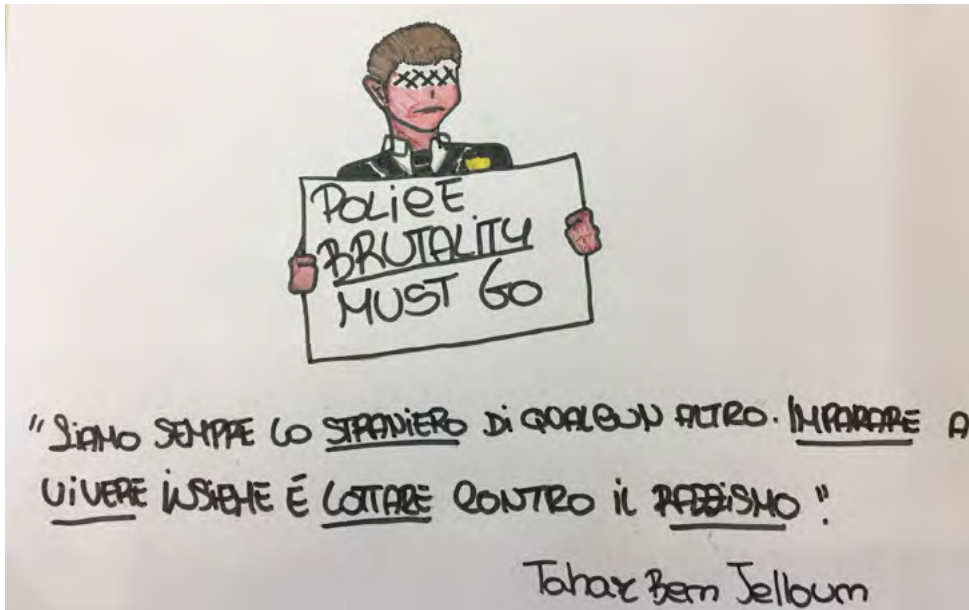 POLICE
BRUTALITY
MUST GO
"SIAMO SEMPRE LO STRANIERO DI QUALCUN ALTRO. IMPARARE A
VIVERE INSIEME É LOTTARE CONTRO IL RAZZISMO".
Tahar Bem Jelloum